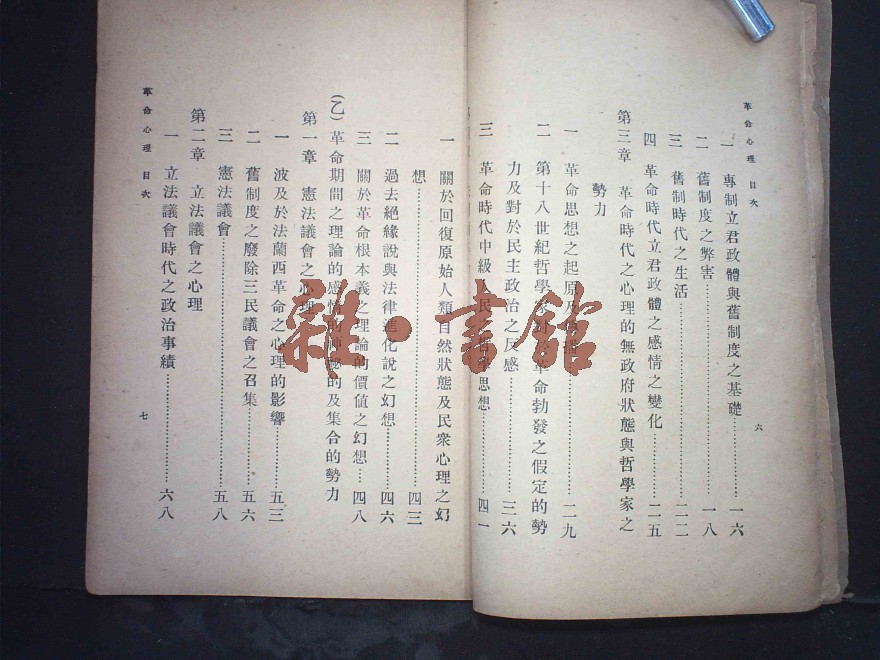 革命心理 目次
六
一 專制立君政體與舊制度之基礎……一六
二 舊制度之弊害……一八
三 舊制時代之生活……二二
四 革命時代立君政體之感情之變化……二五
第三章 革命時代之心理的無政府狀態與哲學家之
勢力
一 革命思想之起原及……二九
二 第十八世紀哲學家對革命勃發之假定的勢
力及對於民主政治之反感……三六
三 革命時代中級人民哲學思想……四一
一 關於回復原始人類自然狀態及民衆心理之幻
想……四三
二 過去絕緣說與法律進化說之幻想……四六
三 關於革命根本義之理論的價値之幻想…四八
(乙) 革命期間之理論的感情的神祕的及集合的勢力
第一章 憲法議會之心理
一 波及於法蘭西革命之心理的影響……五三
二 舊制度之廢除三民議會之召集……五六
三 憲法議會……五八
第二章 立法議會之心理
一 立法議會時代之政治事績……六八
革命心理 目次
七
雜·書館